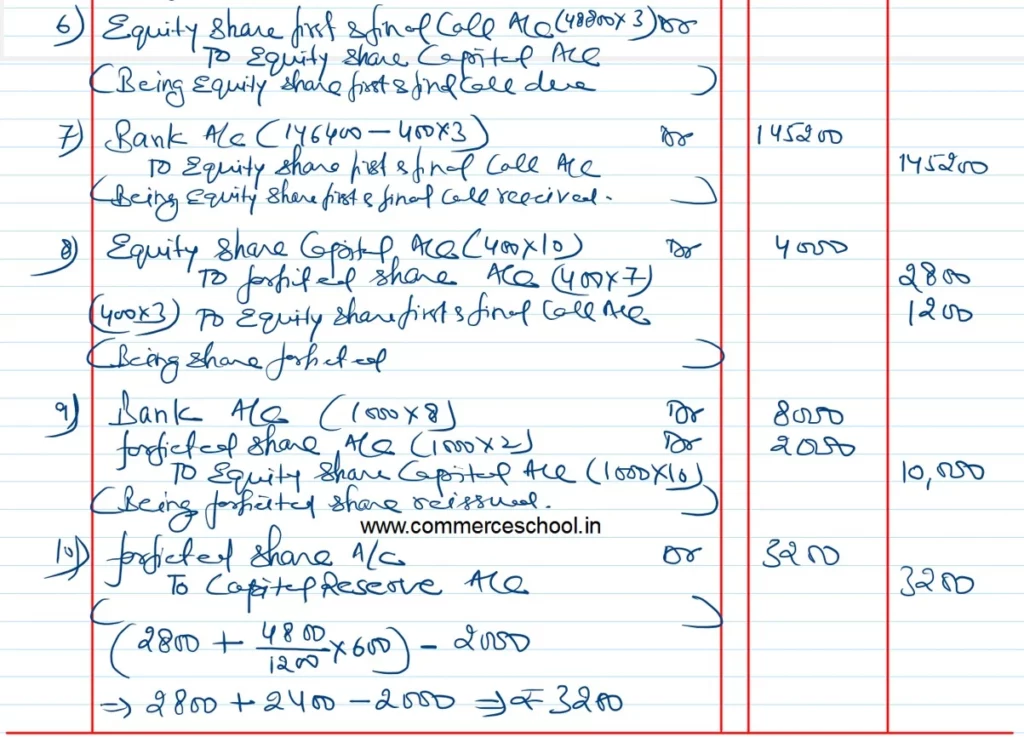 6) Equity Share first & final Call A/c (48800×3) Dr
To Equity Share Capital A/c
(Being Equity share first & final call due)
7) Bank A/c (146400 – 400×3) Dr 145200
To Equity share first & final Call A/c 145200
(Being Equity share first & final call received.)
8) Equity Share Capital A/c (400×10) Dr 4000
To forfited share A/c (400×7) 2800
(400×3) To Equity share first & final Call A/c 1200
(Being share forfited)
9) Bank A/c (1000×8) Dr 8000
forficted share A/c (1000×2) Dr 2000
To Equity Share Capital A/c (1000×10) 10,000
(Being forfieted share reissued.)
www.commerceschool.in
10) forficted share A/c Dr 3200
To Capital Reserve A/c 3200
( )
(2800 + 4800/1200 × 600) – 2000
⇒ 2800 + 2400 – 2000 ⇒ ₹3200